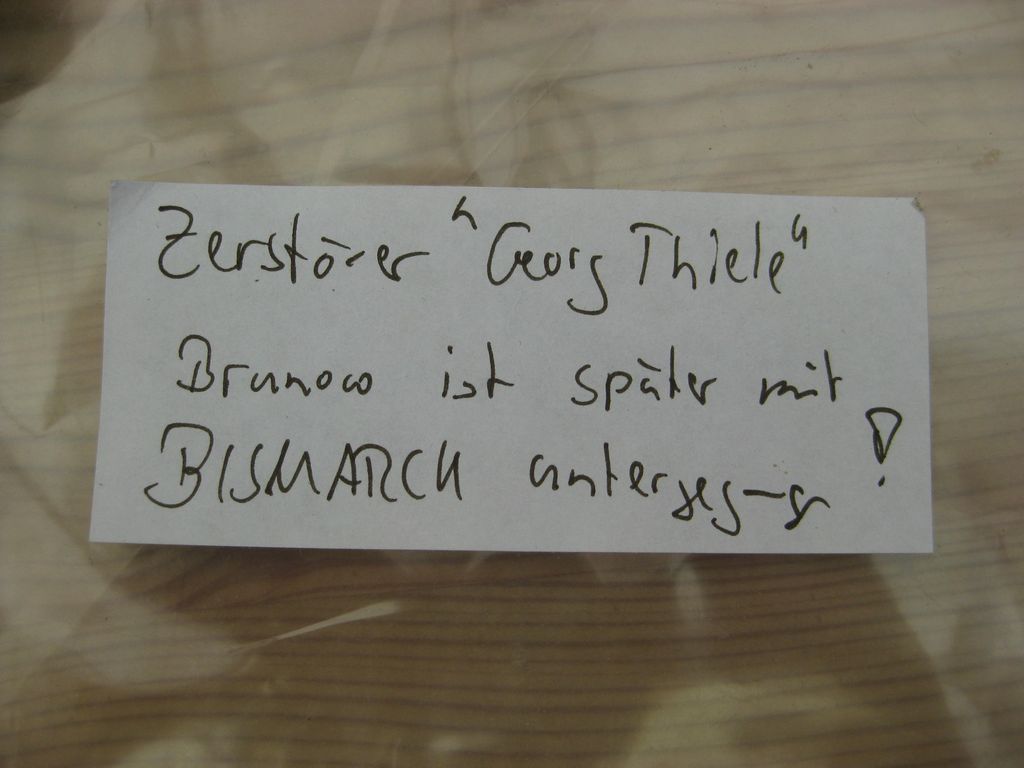 Zerstörer "Georg Thiele"
Brunow ist später mit
BISMARCK untergegangen !